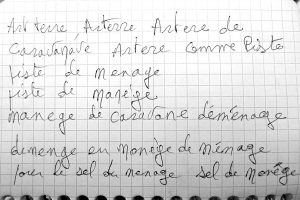 Art terre, Arterre Artere de
Caravanave Artere comme Piste
piste de menage
piste de manège
manege de caravane déménage
demenge en monège de ménage
pour le sel du menage sel de monège